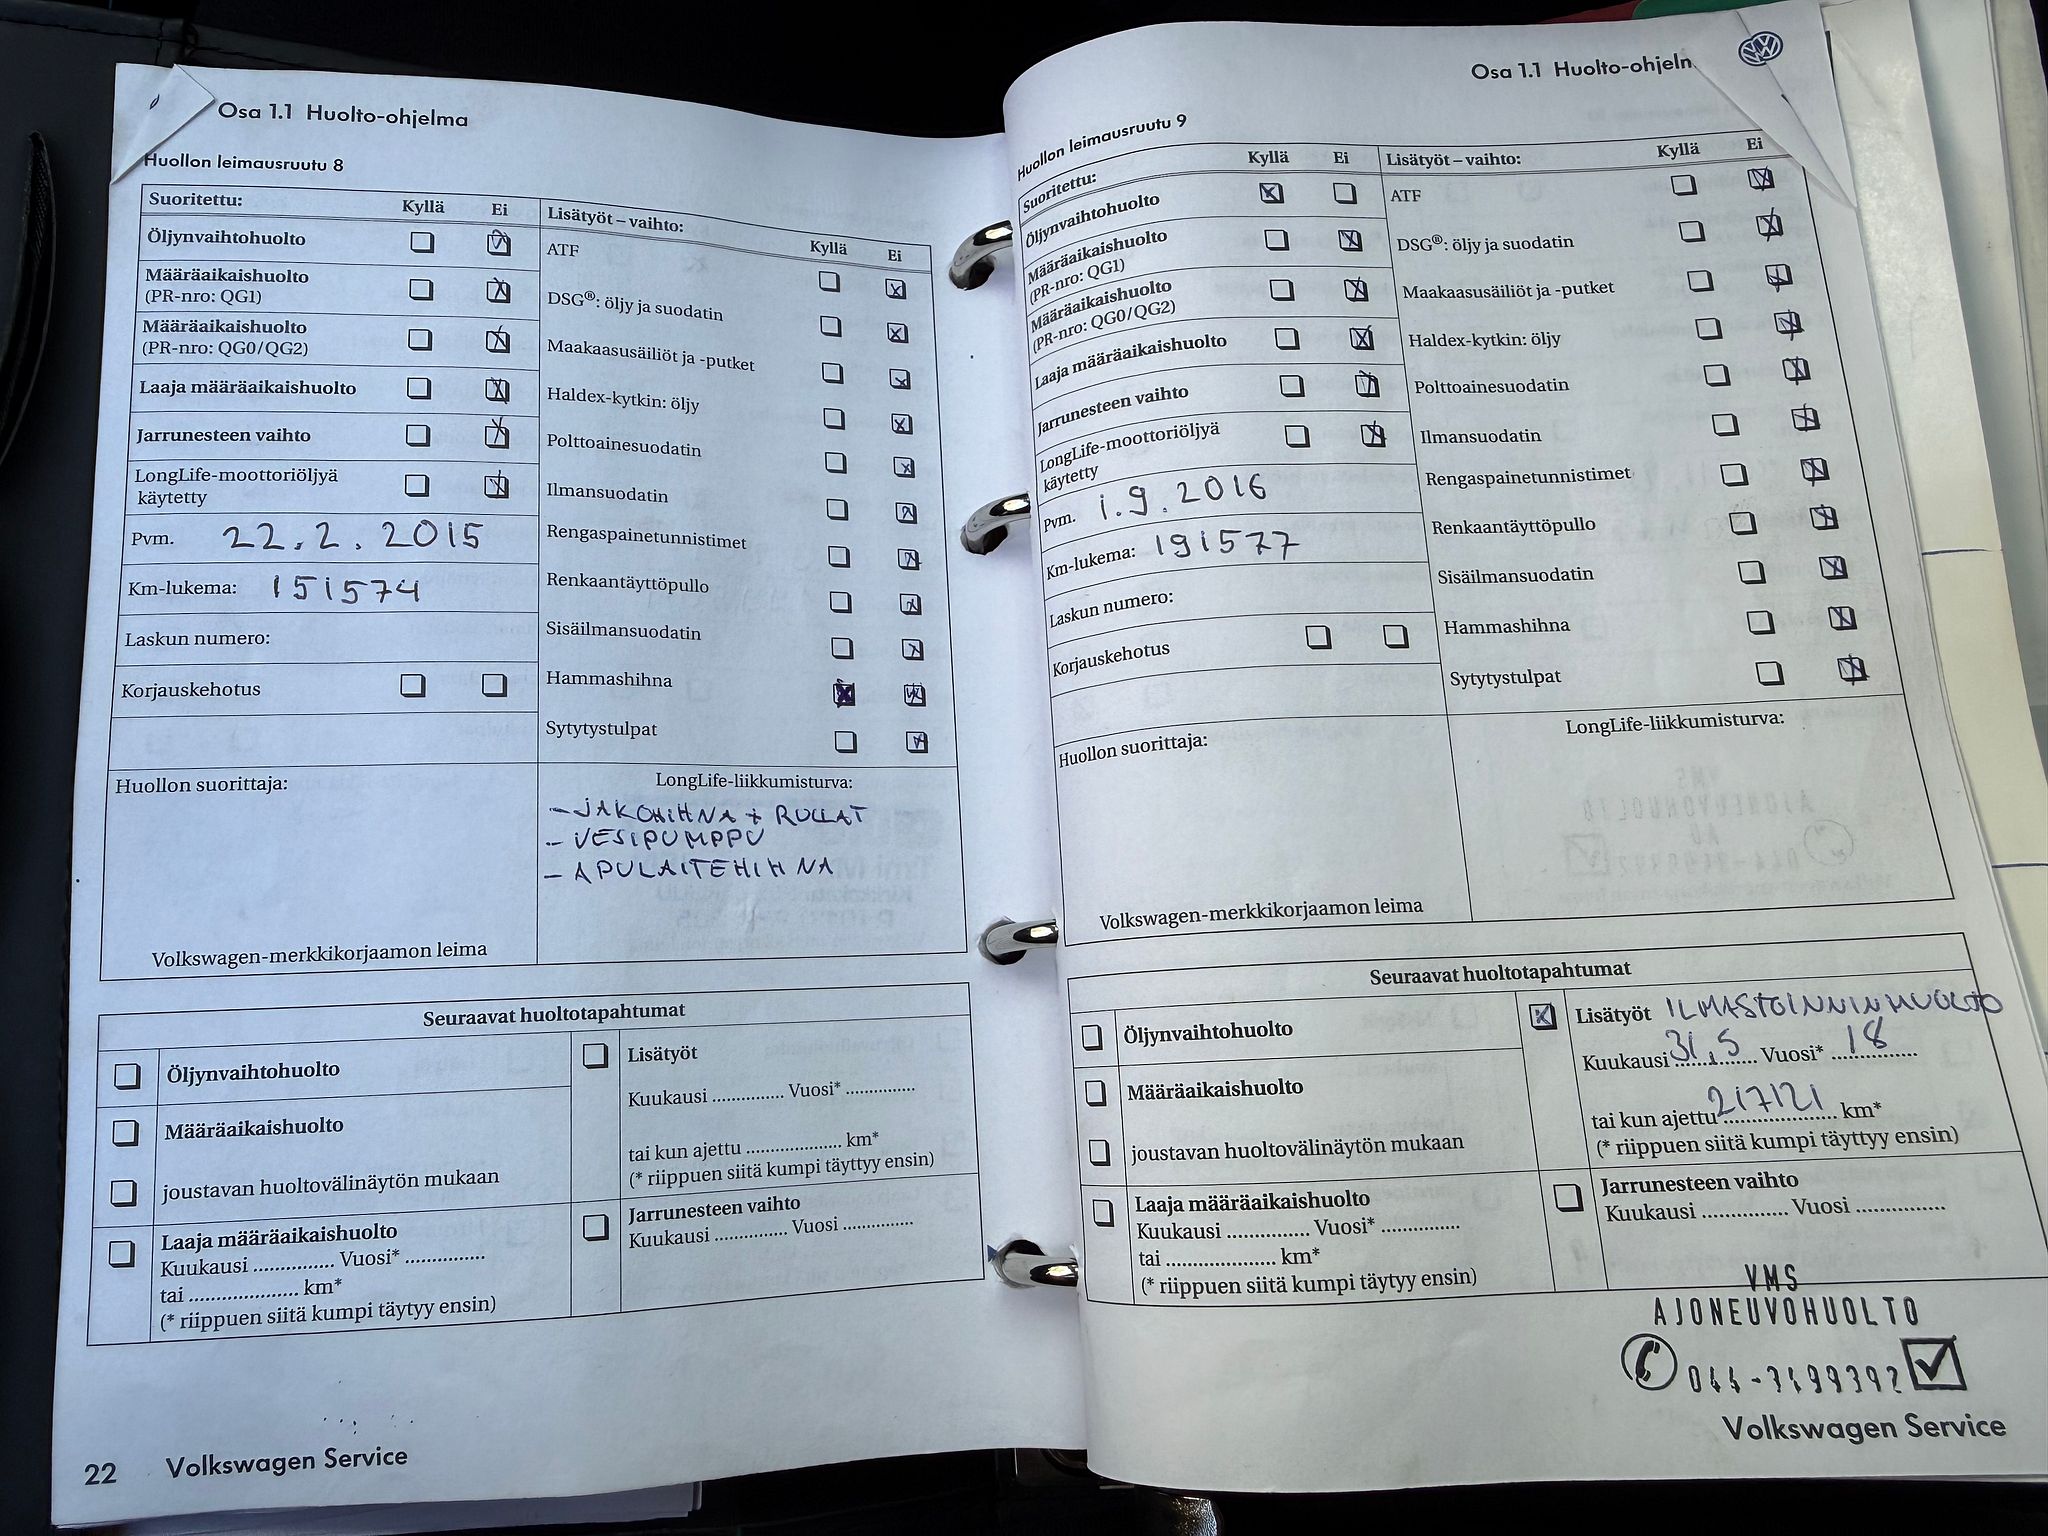 Osa 1.1 Huolto-ohjelma
Huollon leimausruutu 8
Suoritettu: Kyllä Ei
Öljynvaihtohuolto
Määräaikaishuolto
(PR-nro: QG1)
Määräaikaishuolto
(PR-nro: QG0/QG2)
Laaja määräaikaishuolto
Jarrunesteen vaihto
LongLife-moottoriöljyä
käytetty
Pvm. 22.2.2015
Km-lukema: 151574
Laskun numero:
Korjauskehotus
Lisätyöt – vaihto: Kyllä Ei
ATF
DSG®: öljy ja suodatin
Maakaasusäiliöt ja -putket
Haldex-kytkin: öljy
Polttoainesuodatin
Ilmansuodatin
Rengaspainetunnistimet
Renkaantäyttöpullo
Sisäilmansuodatin
Hammashihna
Sytytystulpat
Huollon suorittaja:
Volkswagen-merkkikorjaamon leima
LongLife-liikkumisturva:
- JAKOHIHNA + RULLAT
- VESIPUMPPU
- APULAITEHIHNA
Seuraavat huoltotapahtumat
Öljynvaihtohuolto
Määräaikaishuolto
joustavan huoltovälinäytön mukaan
Laaja määräaikaishuolto
Kuukausi ............... Vuosi* ..............
tai .................... km*
(* riippuen siitä kumpi täytyy ensin)
Lisätyöt
Kuukausi ............. Vuosi* .............
tai kun ajettu .................. km*
(* riippuen siitä kumpi täyttyy ensin)
Jarrunesteen vaihto
Kuukausi ............. Vuosi .............
22 Volkswagen Service
Osa 1.1 Huolto-ohjelm
Huollon leimausruutu 9
Suoritettu: Kyllä Ei
Öljynvaihtohuolto
Määräaikaishuolto
(PR-nro: QG1)
Määräaikaishuolto
(PR-nro: QG0/QG2)
Laaja määräaikaishuolto
Jarrunesteen vaihto
LongLife-moottoriöljyä
käytetty
Pvm. 1.9.2016
Km-lukema: 191577
Laskun numero:
Korjauskehotus
Lisätyöt – vaihto: Kyllä Ei
ATF
DSG®: öljy ja suodatin
Maakaasusäiliöt ja -putket
Haldex-kytkin: öljy
Polttoainesuodatin
Ilmansuodatin
Rengaspainetunnistimet
Renkaantäyttöpullo
Sisäilmansuodatin
Hammashihna
Sytytystulpat
Huollon suorittaja:
Volkswagen-merkkikorjaamon leima
LongLife-liikkumisturva:
Seuraavat huoltotapahtumat
Öljynvaihtohuolto
Määräaikaishuolto
joustavan huoltovälinäytön mukaan
Laaja määräaikaishuolto
Kuukausi ............... Vuosi* ..............
tai .................... km*
(* riippuen siitä kumpi täytyy ensin)
Lisätyöt ILMASTOINNINHUOLTO
Kuukausi 31.5 Vuosi* 18
tai kun ajettu 217121 km*
(* riippuen siitä kumpi täyttyy ensin)
Jarrunesteen vaihto
Kuukausi ............... Vuosi ...............
VMS
AJONEUVOHUOLTO
Volkswagen Service